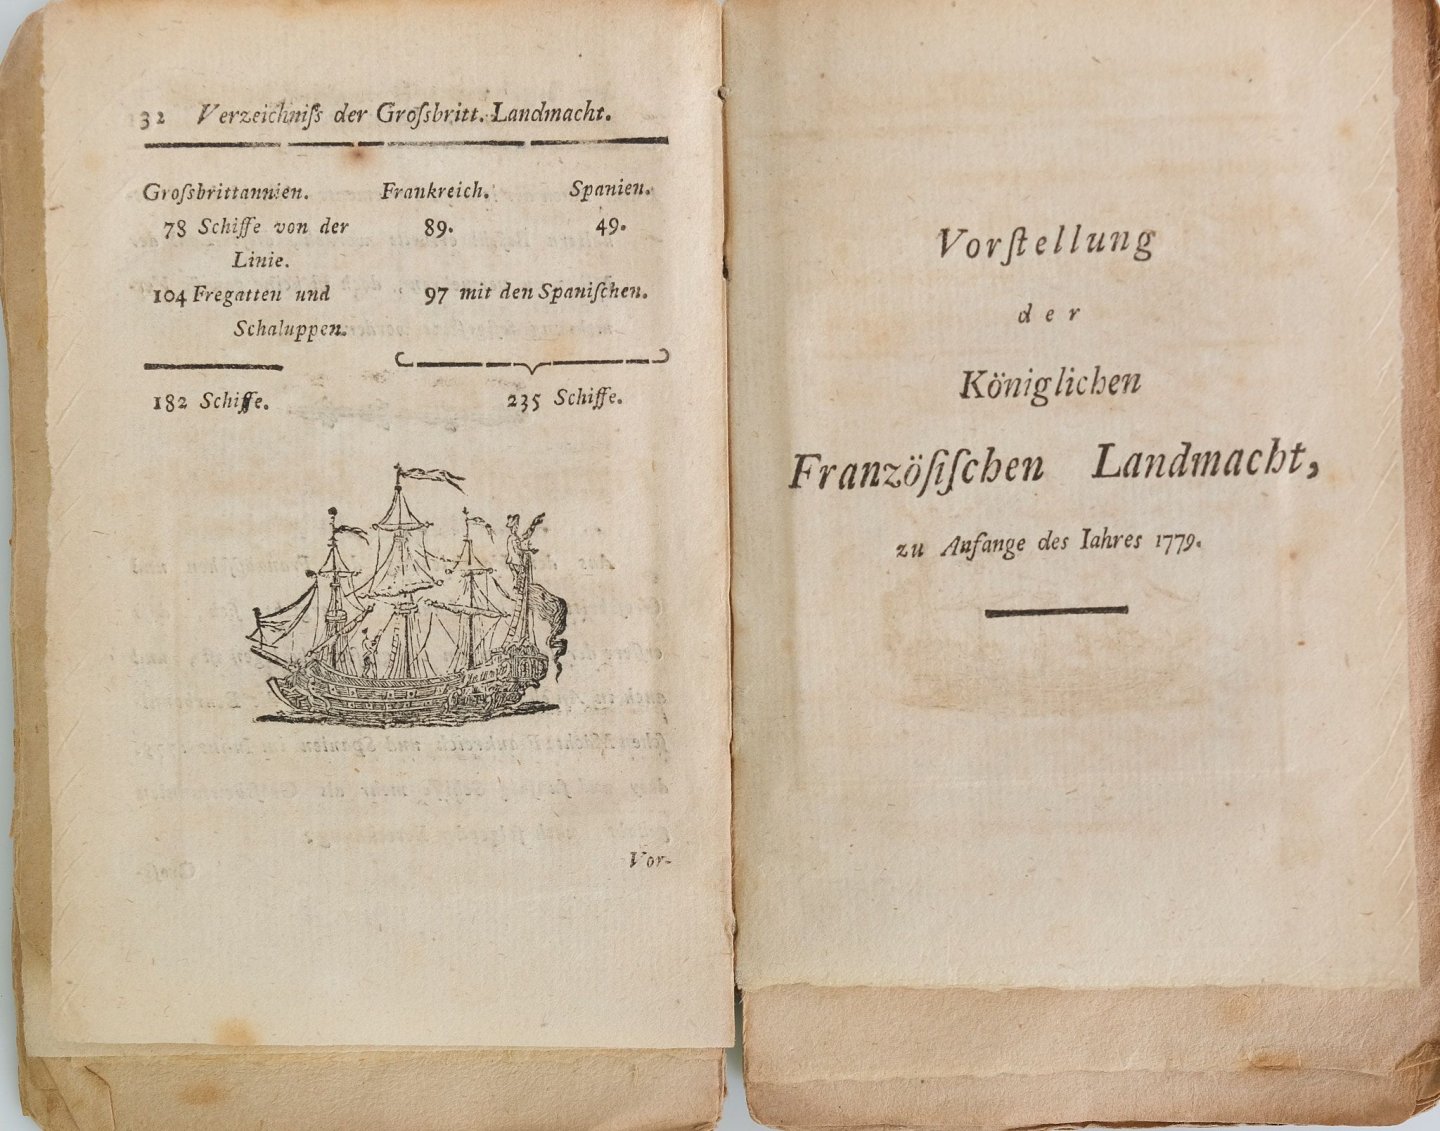 32 Verzeichniſs der Groſsbritt. Landmacht.
Groſsbrittannien. Frankreich. Spanien.
78 Schiffe von der 89. 49.
Linie.
104 Fregatten und 97 mit den Spaniſchen.
Schaluppen.
182 Schiffe. 235 Schiffe.
Vor-
Vorſtellung
der
Königlichen
Franzöſiſchen Landmacht,
zu Anfange des Iahres 1779.